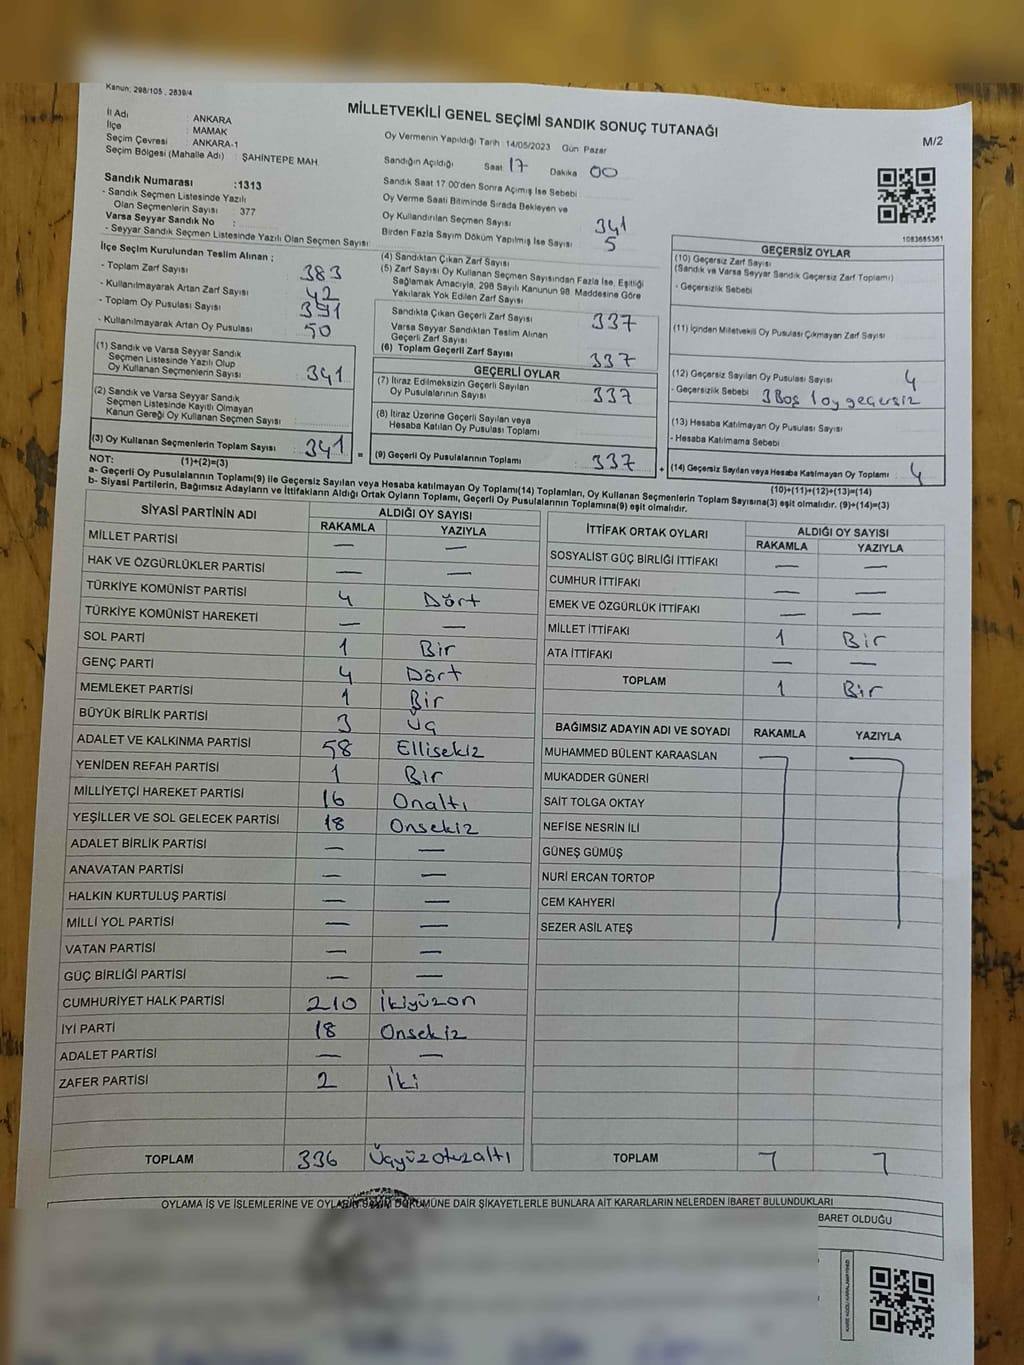 Kanun: 298/105, 2839/4
MİLLETVEKİLİ GENEL SEÇİMİ SANDIK SONUÇ TUTANAĞI
M/2
İl Adı : ANKARA
İlçe : MAMAK
Seçim Çevresi : ANKARA-1
Seçim Bölgesi (Mahalle Adı) : ŞAHİNTEPE MAH.
Sandık Numarası :1313
- Sandık Seçmen Listesinde Yazılı
Olan Seçmenlerin Sayısı : 377
Varsa Seyyar Sandık No :
- Seyyar Sandık Seçmen Listesinde Yazılı Olan Seçmen Sayısı:
Oy Vermenin Yapıldığı Tarih : 14/05/2023 Gün: Pazar
Sandığın Açıldığı Saat 17 Dakika 00
Sandık Saat 17:00'den Sonra Açılmış İse Sebebi
Oy Verme Saati Bitiminde Sırada Bekleyen ve
Oy Kullandırılan Seçmen Sayısı 341
Birden Fazla Sayım Döküm Yapılmış İse Sayısı 5
1083685361
İlçe Seçim Kurulundan Teslim Alınan ;
- Toplam Zarf Sayısı 383
- Kullanılmayarak Artan Zarf Sayısı 42
- Toplam Oy Pusulası Sayısı 391
- Kullanılmayarak Artan Oy Pusulası 50
(1) Sandık ve Varsa Seyyar Sandık
Seçmen Listesinde Yazılı Olup
Oy Kullanan Seçmenlerin Sayısı 341
(2) Sandık ve Varsa Seyyar Sandık
Seçmen Listesinde Kayıtlı Olmayan
Kanun Gereği Oy Kullanan Seçmen Sayısı
(3) Oy Kullanan Seçmenlerin Toplam Sayısı 341 =
(4) Sandıktan Çıkan Zarf Sayısı
(5) Zarf Sayısı Oy Kullanan Seçmen Sayısından Fazla İse, Eşitliği
Sağlamak Amacıyla, 298 Sayılı Kanunun 98. Maddesine Göre
Yakılarak Yok Edilen Zarf Sayısı
Sandıkta Çıkan Geçerli Zarf Sayısı 337
Varsa Seyyar Sandıktan Teslim Alınan
Geçerli Zarf Sayısı
(6) Toplam Geçerli Zarf Sayısı 337
GEÇERLİ OYLAR
(7) İtiraz Edilmeksizin Geçerli Sayılan
Oy Pusulalarının Sayısı 337
(8) İtiraz Üzerine Geçerli Sayılan veya
Hesaba Katılan Oy Pusulası Toplamı
(9) Geçerli Oy Pusulalarının Toplamı 337 +
GEÇERSİZ OYLAR
(10) Geçersiz Zarf Sayısı
(Sandık ve Varsa Seyyar Sandık Geçersiz Zarf Toplamı)
- Geçersizlik Sebebi
(11) İçinden Milletvekili Oy Pusulası Çıkmayan Zarf Sayısı
(12) Geçersiz Sayılan Oy Pusulası Sayısı 4
- Geçersizlik Sebebi 3 Boş 1 oy geçersiz
(13) Hesaba Katılmayan Oy Pusulası Sayısı
- Hesaba Katılmama Sebebi
(14) Geçersiz Sayılan veya Hesaba Katılmayan Oy Toplamı 4
NOT: (1)+(2)=(3)
(10)+(11)+(12)+(13)=(14)
a- Geçerli Oy Pusulalarının Toplamı(9) ile Geçersiz Sayılan veya Hesaba katılmayan Oy Toplamı(14) Toplamları, Oy Kullanan Seçmenlerin Toplam Sayısına(3) eşit olmalıdır. (9)+(14)=(3)
b- Siyasi Partilerin, Bağımsız Adayların ve İttifakların Aldığı Ortak Oyların Toplamı, Geçerli Oy Pusulalarının Toplamına(9) eşit olmalıdır.
SİYASİ PARTİNİN ADI ALDIĞI OY SAYISI
RAKAMLA YAZIYLA
MİLLET PARTİSİ — —
HAK VE ÖZGÜRLÜKLER PARTİSİ — —
TÜRKİYE KOMÜNİST PARTİSİ 4 Dört
TÜRKİYE KOMÜNİST HAREKETİ — —
SOL PARTİ 1 Bir
GENÇ PARTİ 4 Dört
MEMLEKET PARTİSİ 1 Bir
BÜYÜK BİRLİK PARTİSİ 3 Üç
ADALET VE KALKINMA PARTİSİ 58 Ellisekiz
YENİDEN REFAH PARTİSİ 1 Bir
MİLLİYETÇİ HAREKET PARTİSİ 16 Onaltı
YEŞİLLER VE SOL GELECEK PARTİSİ 18 Onsekiz
ADALET BİRLİK PARTİSİ — —
ANAVATAN PARTİSİ — —
HALKIN KURTULUŞ PARTİSİ — —
MİLLİ YOL PARTİSİ — —
VATAN PARTİSİ — —
GÜÇ BİRLİĞİ PARTİSİ — —
CUMHURİYET HALK PARTİSİ 210 İkiyüzon
İYİ PARTİ 18 Onsekiz
ADALET PARTİSİ — —
ZAFER PARTİSİ 2 İki
TOPLAM 336 Üçyüzotuzaltı
İTTİFAK ORTAK OYLARI ALDIĞI OY SAYISI
RAKAMLA YAZIYLA
SOSYALİST GÜÇ BİRLİĞİ İTTİFAKI — —
CUMHUR İTTİFAKI — —
EMEK VE ÖZGÜRLÜK İTTİFAKI — —
MİLLET İTTİFAKI 1 Bir
ATA İTTİFAKI — —
TOPLAM 1 Bir
BAĞIMSIZ ADAYIN ADI VE SOYADI RAKAMLA YAZIYLA
MUHAMMED BÜLENT KARAASLAN
MUKADDER GÜNERİ
SAİT TOLGA OKTAY
NEFİSE NESRİN İLİ
GÜNEŞ GÜMÜŞ
NURİ ERCAN TORTOP
CEM KAHYERİ
SEZER ASİL ATEŞ
TOPLAM
OYLAMA İŞ VE İŞLEMLERİNE VE OYLARIN SAYIM DÖKÜMÜNE DAİR ŞİKAYETLERLE BUNLARA AİT KARARLARIN NELERDEN İBARET BULUNDUKLARI
BARET OLDUĞU